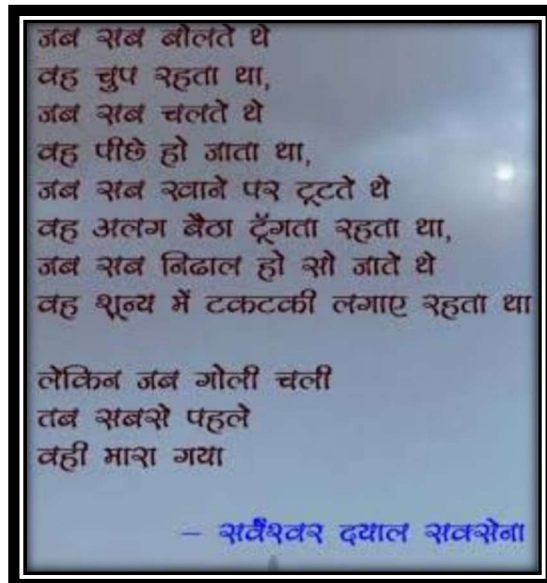 जब सब बोलते थे
वह चुप रहता था,
जब सब चलते थे
वह पीछे हो जाता था,
जब सब खाने पर टूटते थे
वह अलग बैठा टूँगता रहता था,
जब सब निढाल हो सो जाते थे
वह शून्य में टकटकी लगाए रहता था
लेकिन जब गोली चली
तब सबसे पहले
वही मारा गया
– सर्वेश्वर दयाल सक्सेना